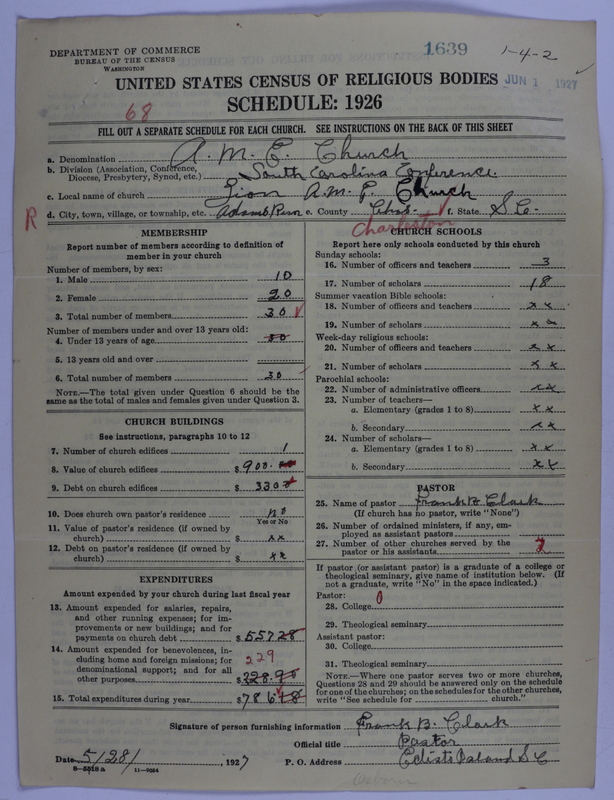 DEPARTMENT OF COMMERCE
BUREAU OF THE CENSUS
WASHINGTON
1639
1-4-2
UNITED STATES CENSUS OF RELIGIOUS BODIES
JUN 1 1927
SCHEDULE: 1926
68
FILL OUT A SEPARATE SCHEDULE FOR EACH CHURCH. SEE INSTRUCTIONS ON THE BACK OF THIS SHEET
a. Denomination A. M. E. Church
b. Division (Association, Conference, Diocese, Presbytery, Synod, etc.) South Carolina Conference
c. Local name of church Zion A. M. E. Church
R d. City, town, village, or township, etc. Adams Run e. County Chas. f. State S. C.
Charleston
MEMBERSHIP
Report number of members according to definition of
member in your church
Number of members, by sex:
1. Male 10
2. Female 20
3. Total number of members 30
Number of members under and over 13 years old:
4. Under 13 years of age 30
5. 13 years old and over
6. Total number of members 30
NOTE.—The total given under Question 6 should be the
same as the total of males and females given under Question 3.
CHURCH BUILDINGS
See instructions, paragraphs 10 to 12
7. Number of church edifices 1
8. Value of church edifices $ 900.
9. Debt on church edifices $
10. Does church own pastor's residence no
Yes or No
11. Value of pastor's residence (if owned by
church) $ xx
12. Debt on pastor's residence (if owned by
church) $ xx
EXPENDITURES
Amount expended by your church during last fiscal year
13. Amount expended for salaries, repairs,
and other running expenses; for im-
provements or new buildings; and for
payments on church debt $ 557.28
14. Amount expended for benevolences, in-
cluding home and foreign missions; for
denominational support; and for all
other purposes 229
$ 228.90
15. Total expenditures during year $ 786.18
CHURCH SCHOOLS
Report here only schools conducted by this church
Sunday schools:
16. Number of officers and teachers 3
17. Number of scholars 18
Summer vacation Bible schools:
18. Number of officers and teachers xx
19. Number of scholars xx
Week-day religious schools:
20. Number of officers and teachers xx
21. Number of scholars xx
Parochial schools:
22. Number of administrative officers xx
23. Number of teachers—
a. Elementary (grades 1 to 8) xx
b. Secondary xx
24. Number of scholars—
a. Elementary (grades 1 to 8) xx
b. Secondary xx
PASTOR
25. Name of pastor Frank B. Clark
(If church has no pastor, write "None")
26. Number of ordained ministers, if any, em-
ployed as assistant pastors
27. Number of other churches served by the
pastor or his assistants
If pastor (or assistant pastor) is a graduate of a college or
theological seminary, give name of institution below. (If
not a graduate, write "No" in the space indicated.)
Pastor: 0
28. College
29. Theological seminary
Assistant pastor:
30. College
31. Theological seminary
NOTE.—Where one pastor serves two or more churches,
Questions 28 and 29 should be answered only on the schedule
for one of the churches; on the schedules for the other churches,
write "See schedule for church."
Signature of person furnishing information Frank B. Clark
Official title Pastor
Date 5/28/, 1927 P. O. Address Edisto Island S C
8-5518 a 11-9064